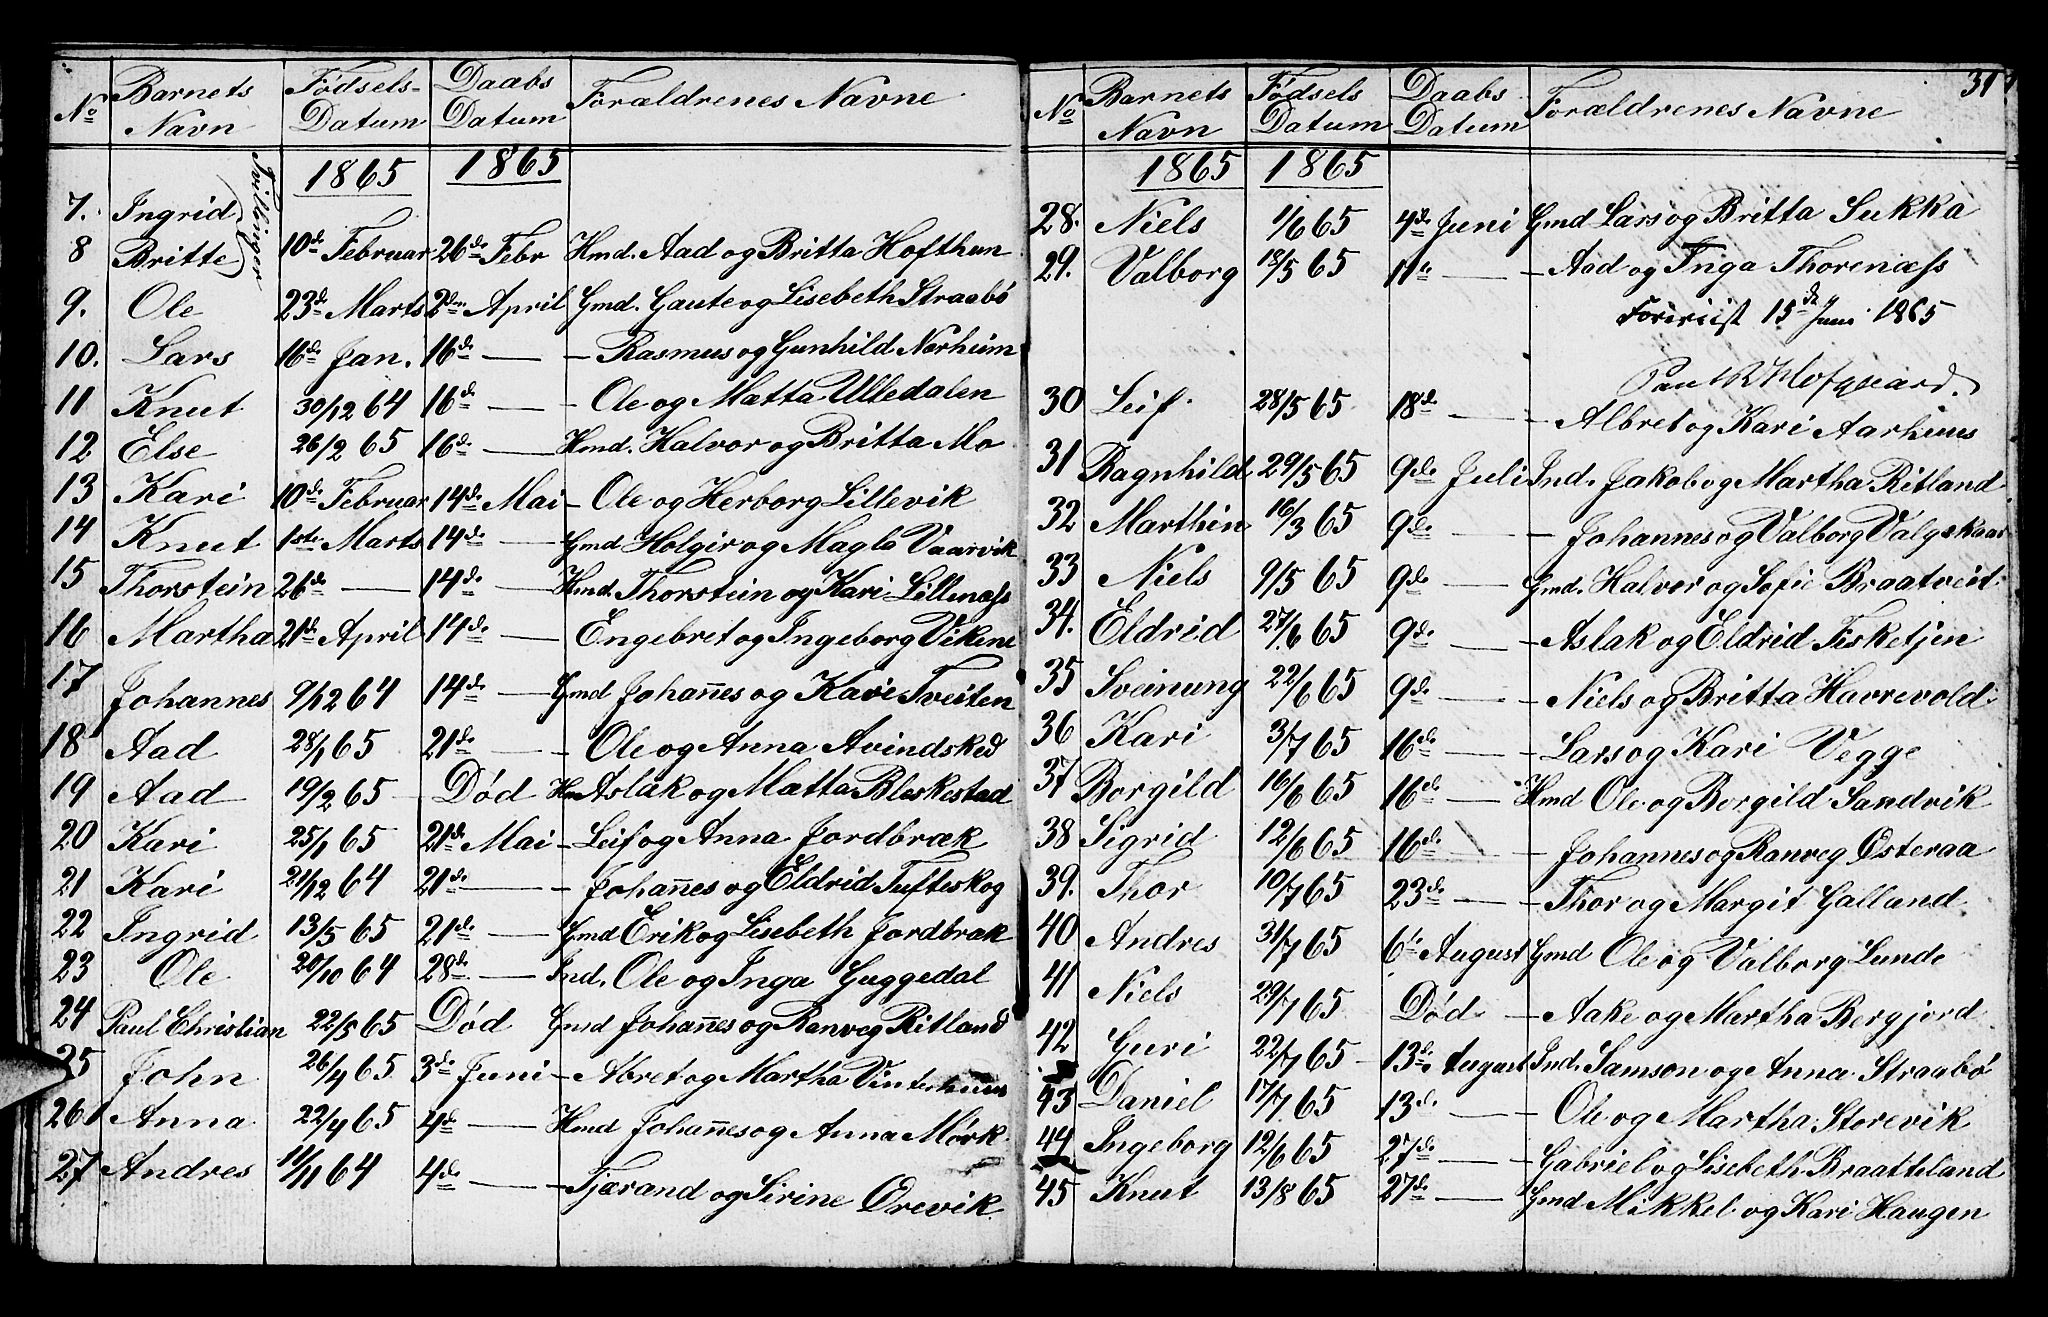 No Barnets Navn Fødsels-Datum Daabs Datum Forældrenes Navne
1865 1865
Tvillinger
7. Ingrid
8 Britte 10de Februar 26de Febr Hmd. Aad og Britta Hofthun
9. Ole 23de Marts 2den April Gmd. Gaute og Lisebeth Straabø
10. Lars 16de Jan. 16de — — Rasmus og Gunhild Nærheim
11 Knut 30/12 64 16de — — Ole og Mætta Ulledalen
12 Else 26/2 65 16de — Hmd. Halvor og Britta Mo
13 Kari 10de Februar 14de Mai — Ole og Herborg Lillevik
14 Knut 1ste Marts 14de — Gmd Holgir og Magla Vaarvik
15 Thorstein 26de — 14de — Hmd. Thorstein og Kari Lillenæss
16 Martha 21de April 14de — — Engebret og Ingeborg Vikene
17 Johannes 9/12 64 14de — Gmd Johañes og Kari Tveiten
18 Aad 28/1 65 21de — — Ole og Anna Avindsked
19 Aad 19/2 65 Død Hm Aslak og Mætta Bleskestad
20 Kari 25/1 65 21de Mai — Leif og Anna Jordbræk
21 Kari 21/12 64 21de — — Johañes og Eldrid Tufteskog
22 Ingrid 13/5 65 21de — Gmd Erik og Lisebeth Jordbræk
23 Ole 20/10 64 28de — Ind. Ole og Inga Guggedal
24 Paul Christian 22/5 65 Død Gmd Johañes og Ranveg Ritland
25 John 26/4 65 3de Juni — Abret og Martha Vinterhuus
26 Anna 22/4 65 4de — Hmd Johañes og Anna Mørk
27 Andres 11/11 64 4de — — Tjærand og Sirine Ørevik
31
No Barnets Navn Fødsels Datum Daabs Datum Forældrenes Navne
1865 1865
28. Niels 1/6 65 4de Juni Gmd Lars og Britta Sukka
29. Valborg 18/5 65 11te — — Aad og Inga Thorenæss
15de Juni 1865
30 Leif 28/5 65 18de — — Albret og Kari Aarhuus
31 Ragnhild 29/5 65 9de Juli Ind. Jakob og Martha Ritland
32 Marthin 16/3 65 9de — — Johannes og Valborg Valgeskaar
33 Niels 9/5 65 9de — Gmd. Halvor og Sofie Braatveit
34. Eldrid 27/6 65 9de — — Aslak og Eldrid Fisketjen
35 Sveinung 22/6 65 9de — — Niels og Britta Havrevold
36 Kari 3/7 65 16de — — Lars og Kari Vegge
37 Borgild 16/6 65 16de — Hmd Ole og Borgild Sandvik
38 Sigrid 12/6 65 16de — — Johannes og Ranveg Østeraa
39. Thor 10/7 65 23de — — Thor og Margit Galland
40 Andres 31/7 65 6te August Gmd Ole og Valborg Lunde
41 Niels 29/7 65 Død — Aake og Martha Bergjord
42 Guri 22/7 65 13de August Ind. Samson og Anna Straabø
43 Daniel 17/7 65 13de — — Ole og Martha Storevik
44 Ingeborg 12/6 65 27de — — Gabriel og Lisebeth Braatteland
45 Knut 13/8 65 27de — Gmd Mikkel og Kari Haugen